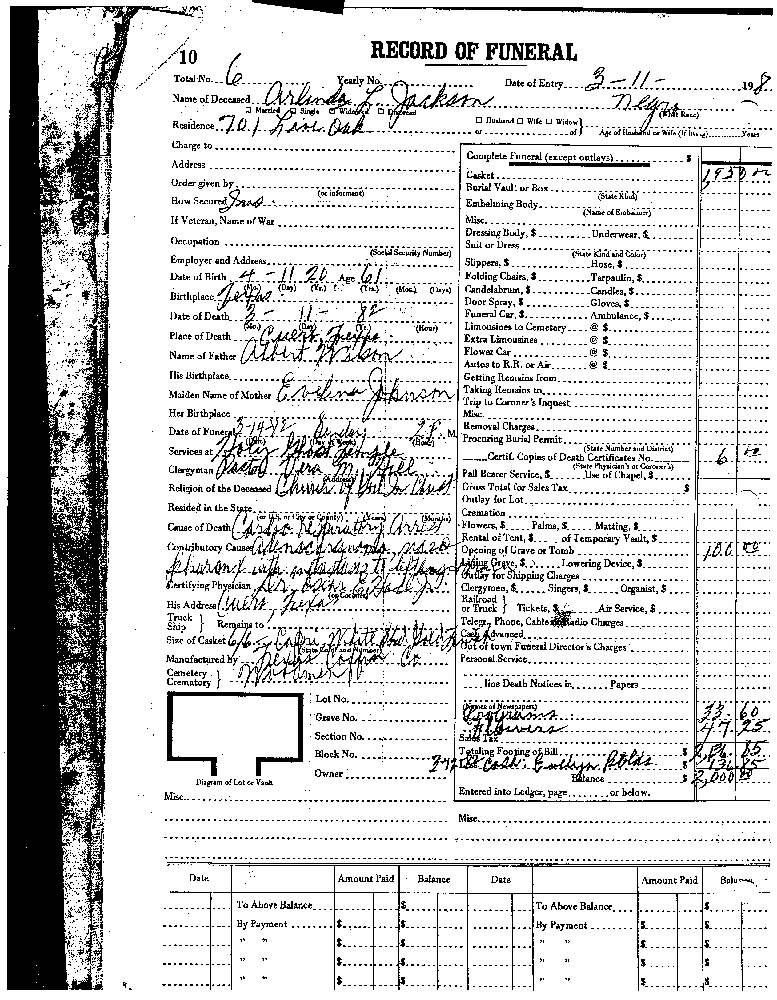 10
RECORD OF FUNERAL
Total No. 6 Yearly No. Date of Entry 3-11- 198
Name of Deceased Arlinda L. Jackson Negro
☐ Married ☐ Single ☐ Widowed ☐ Divorced (What Race)
Residence 701 Live Oak ☐ Husband ☐ Wife ☐ Widow
or of Age of Husband or Wife (if living) Years
Charge to
Address
Order given by
(or informant)
How Secured Ins
If Veteran, Name of War
Occupation
(Social Security Number)
Employer and Address
Date of Birth 4-11-20 Age 61
(Mo.) (Day) (Yr.) (Yrs.) (Mos.) (Days)
Birthplace Texas
Date of Death 3- 11- 82
(Mo.) (Day) (Yr.) (Hour)
Place of Death Cuero, Texas
Name of Father Albert Wilson
His Birthplace
Maiden Name of Mother Evelina Johnson
Her Birthplace
Date of Funeral 3-14-82 Sunday 2 P. M.
(Date) (Day of Week) (Hour)
Services at Holy Ghost Temple
Clergyman Pastor Vera M. Hill
(Address)
Religion of the Deceased Church of God In Christ
Resided in the State
(or U.S. or City or County) (Years) (Months)
Cause of Death Cardio respiratory Arrest
Contributory Cause Adenocarcinoma,
with metastasis to
Certifying Physician Dr.
(or Coroner)
His Address Cuero, Texas
Truck
Ship } Remains to
Size of Casket 6/6 - White
(State Color and Number)
Manufactured by Texas Coffin Co
Cemetery
Crematory }
Diagram of Lot or Vault
Lot No.
Grave No.
Section No.
Block No.
Owner
Misc.
Complete Funeral (except outlays) $
Casket 1,950 00
Burial Vault or Box
(State Kind)
Embalming Body
(Name of Embalmer)
Misc.
Dressing Body, $ Underwear, $
Suit or Dress
(State Kind and Color)
Slippers, $ Hose, $
Folding Chairs, $ Tarpaulin, $
Candelabrum, $ Candles, $
Door Spray, $ Gloves, $
Funeral Car, $ Ambulance, $
Limousines to Cemetery @ $
Extra Limousines @ $
Flower Car @ $
Autos to R.R. or Air @ $
Getting Remains from
Taking Remains to
Trip to Coroner's Inquest
Misc.
Removal Charges
Procuring Burial Permit
(State Number and District)
Certif. Copies of Death Certificates No. 6 00
(State Physician's or Coroner's)
Pall Bearer Service, $ Use of Chapel, $
Gross Total for Sales Tax $
Outlay for Lot
Cremation
Flowers, $ Palms, $ Matting, $
Rental of Tent, $ of Temporary Vault, $
Opening of Grave or Tomb 100 00
Lining Grave, $ Lowering Device, $
Outlay for Shipping Charges
Clergymen, $ Singers, $ Organist, $
Railroad
or Truck } Tickets, $ Air Service, $
Telegr., Phone, Cable or Radio Charges
Cash Advanced
Out of town Funeral Director's Charges
Personal Service
line Death Notices in Papers
(Names of Newspapers)
Programs 33 60
Flowers 47 25
Sales Tax
Totaling Footing of Bill $ 2,136.85
Cash: Evelyn 136.85
Balance $ 2,000 00
Entered into Ledger, page or below.
Misc.
Date Amount Paid Balance Date Amount Paid
To Above Balance $ To Above Balance $
By Payment $ $ By Payment $
" " $ $ " " $
" " $ $ " " $
" " $ $ " " $